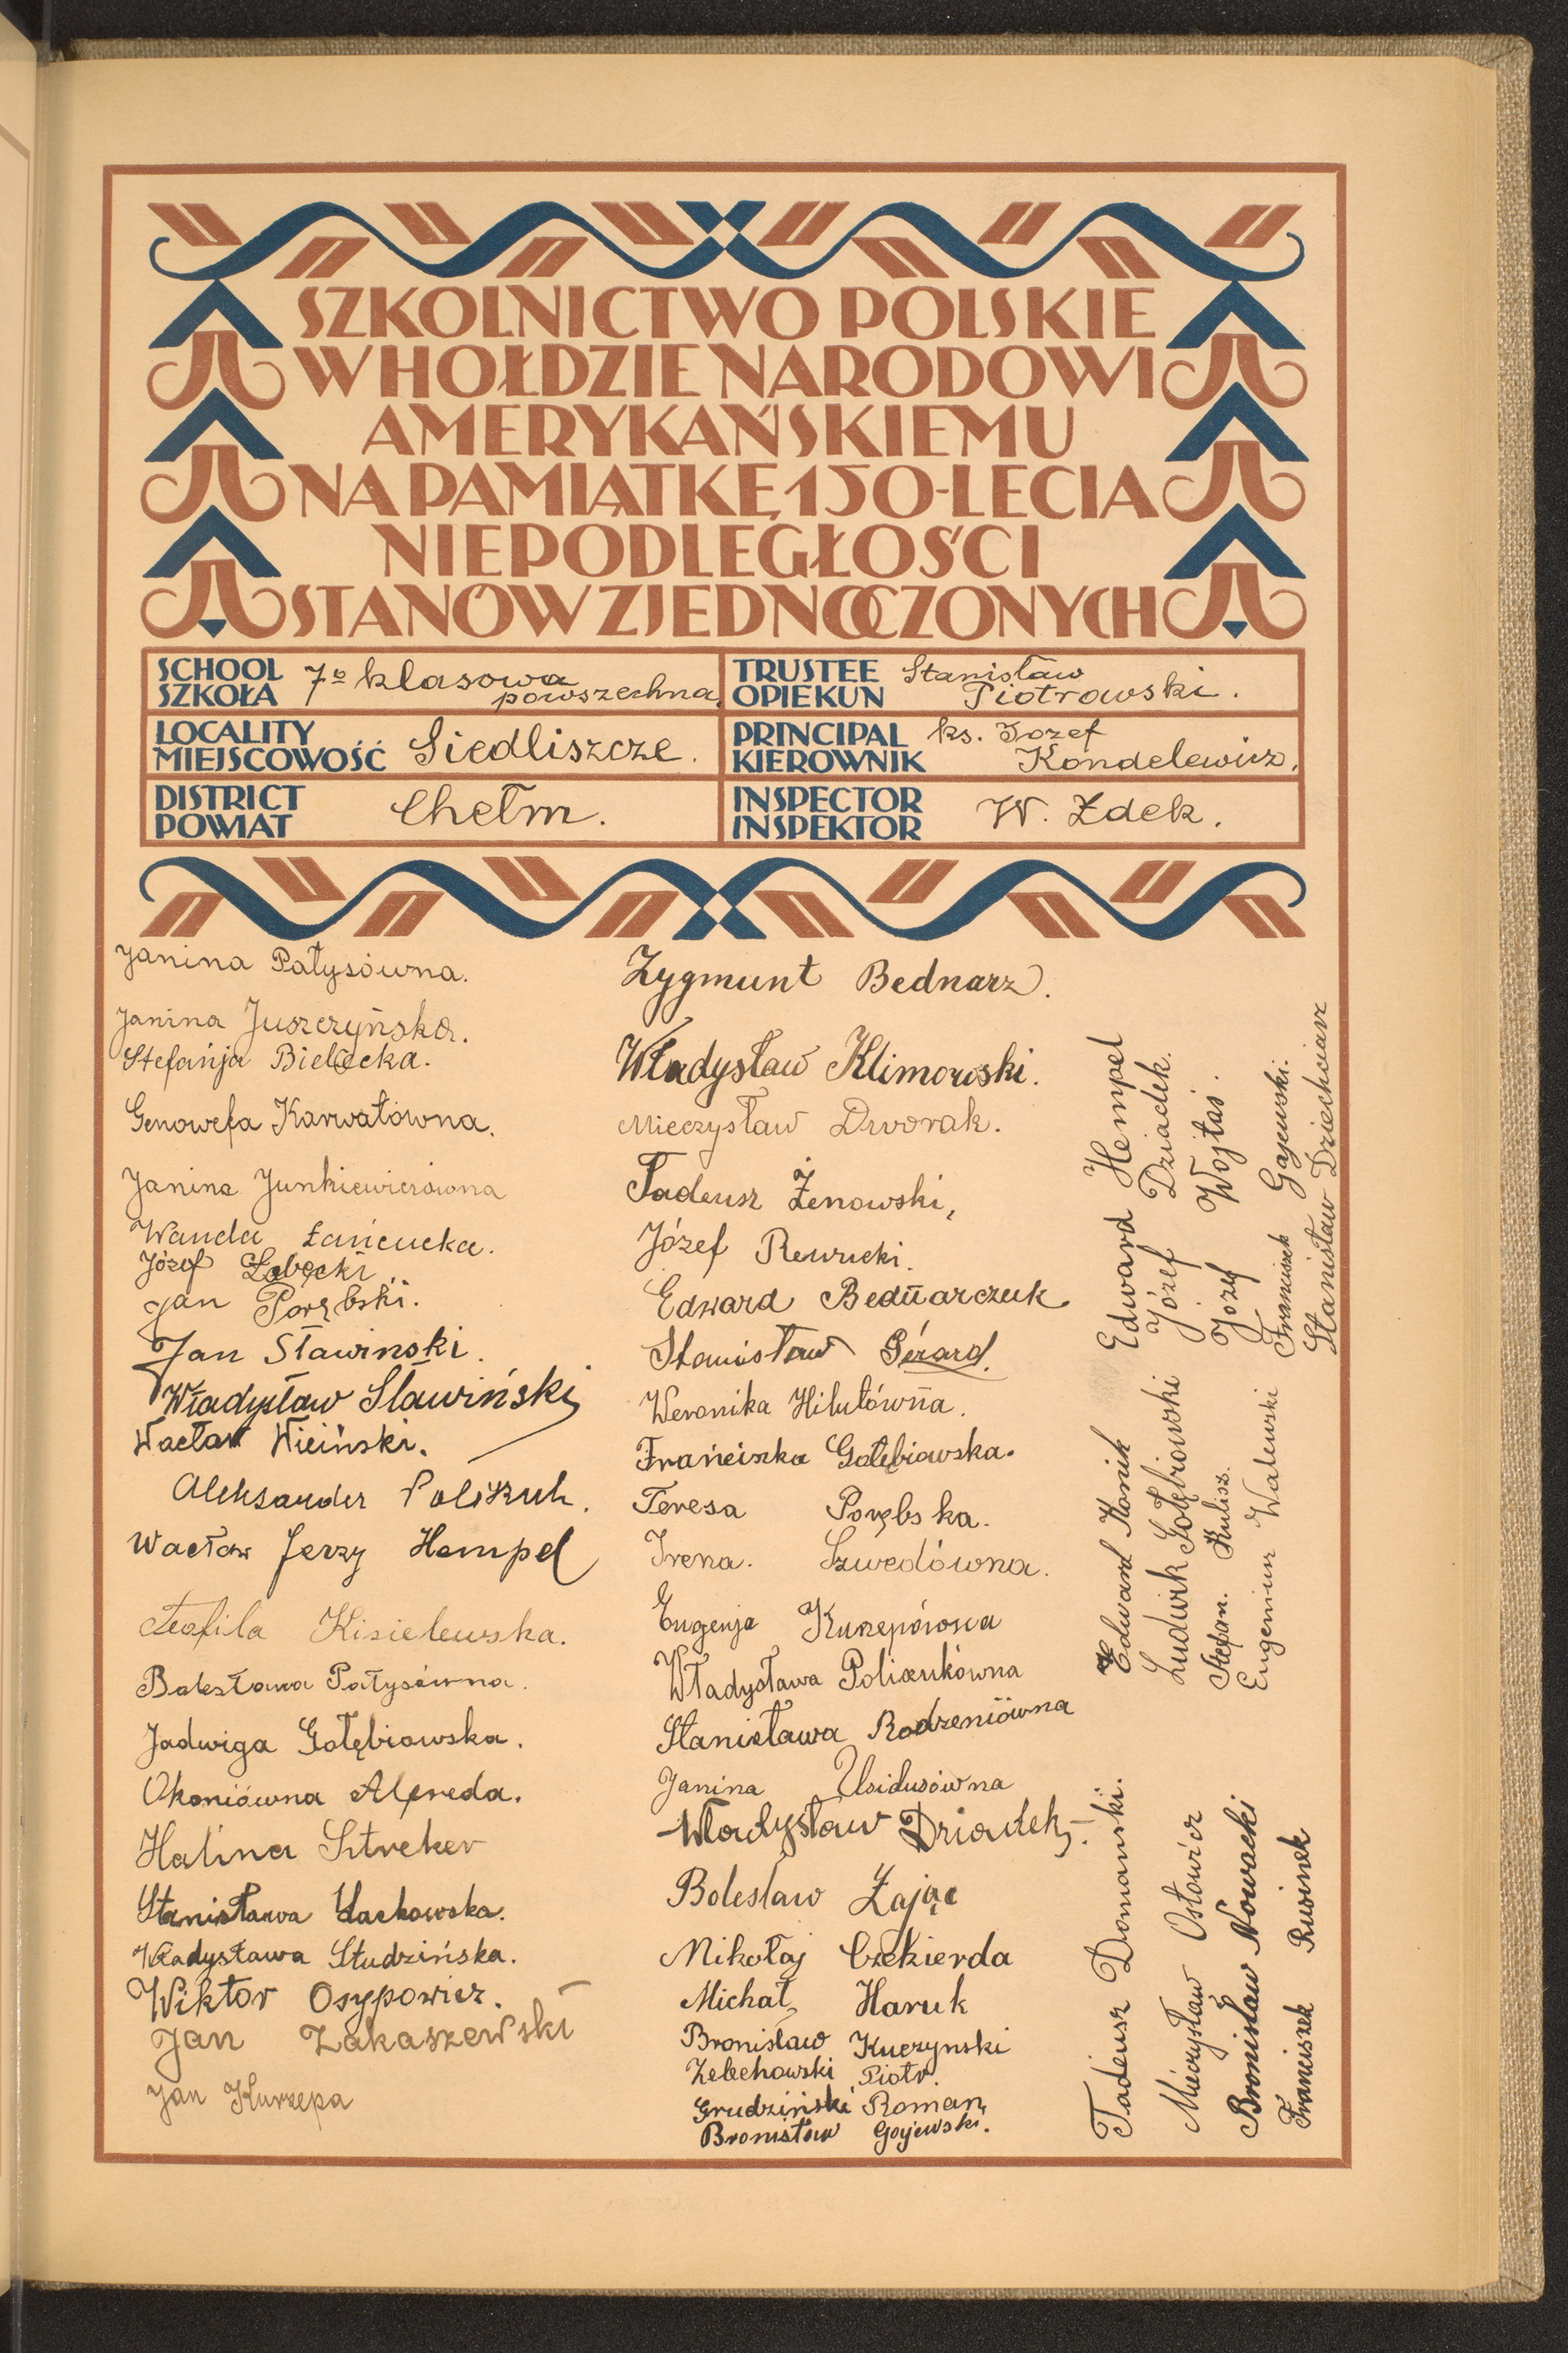 SZKOLNICTWO POLSKIE
W HOŁDZIE NARODOWI
AMERYKAŃSKIEMU
NA PAMIĄTKĘ 150-LECIA
NIEPODLEGŁOŚCI
STANÓW ZJEDNOCZONYCH
SCHOOL
SZKOŁA
7º klasowa
powszechna.
TRUSTEE
OPIEKUN
Stanisław
Piotrowski.
LOCALITY
MIEJSCOWOŚĆ
Siedliszcze.
PRINCIPAL
KIEROWNIK
ks. Józef
Kondelewicz.
DISTRICT
POWIAT
Chełm.
INSPECTOR
INSPEKTOR
W. Zdek.
Janina Pałysówna.
Janina Juszczyńska.
Stefańja Bielecka.
Genowefa Karwatówna.
Janina Junkiewiczówna
Wanda Łańcucka.
Józef Łobęcki
Jan Porębski.
Jan Sławinski.
Władysław Sławiński
Wacław Wiciński.
Aleksander Poliszuk.
Wacław Jerzy Hempel
Teofila Kisielewska.
Bolesława Pałysówna.
Jadwiga Gołębiowska.
Okoniówna Alfreda.
Halina Sztreker
Stanisława
Władysława Studzińska.
Wiktor Osypowicz.
Jan Zakaszewski
Jan Kurzepa
Zygmunt Bednarz.
Władysław Klimowski.
Mieczysław Dworak.
Tadeusz Żenowski,
Józef Rewucki.
Edward Bednarczuk
Stanisław Gérard.
Weronika Hilutówna.
Frańciszka Gołębiowska.
Teresa Porębska.
Irena. Szwedówna.
Eugenja Kurzepówna
Władysława Poliszukówna
Stanisława Rodzeniówna
Janina Usidusówna
Władysław Dziadek.
Bolesław Zając
Mikołaj Czekierda
Michał Haruk
Bronisław Kuczynski
Żelechowski Piotr.
Grudziński Roman,
Bronisław Gajewski.
Edward Hempel
Józef Dziadek.
Józef Wojtaś.
Franciszek Gajewski.
Stanisław Dziechciarz
Edward Konik
Ludwik Gołębiowski
Stefan. Kulisz.
Eugeniusz Walewski
Tadeusz Domański.
Mieczysław Ostowicz
Bronisław Nowacki
Franciszek Rusinek